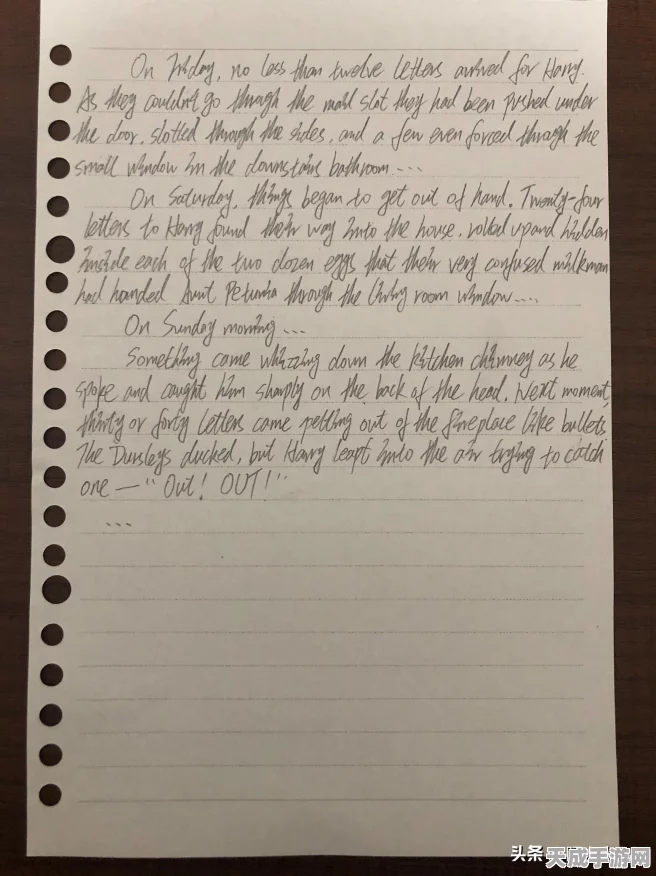 On Friday, no less than twelve letters arrived for Harry.
As they couldn't go through the mail slot they had been pushed under
the door, slotted through the sides, and a few even forced through the
small window in the downstairs bathroom....
On Saturday, things began to get out of hand. Twenty-four
letters to Harry found their way into the house, rolled up and hidden
inside each of the two dozen eggs that their very confused milkman
had handed Aunt Petunia through the living room window....
On Sunday morning...
Something came whizzing down the kitchen chimney as he
spoke and caught him sharply on the back of the head. Next moment,
thirty or forty letters came pelting out of the fireplace like bullets.
The Dursleys ducked, but Harry leapt into the air trying to catch
one — "Out! OUT!"
...
头条
天成手游网